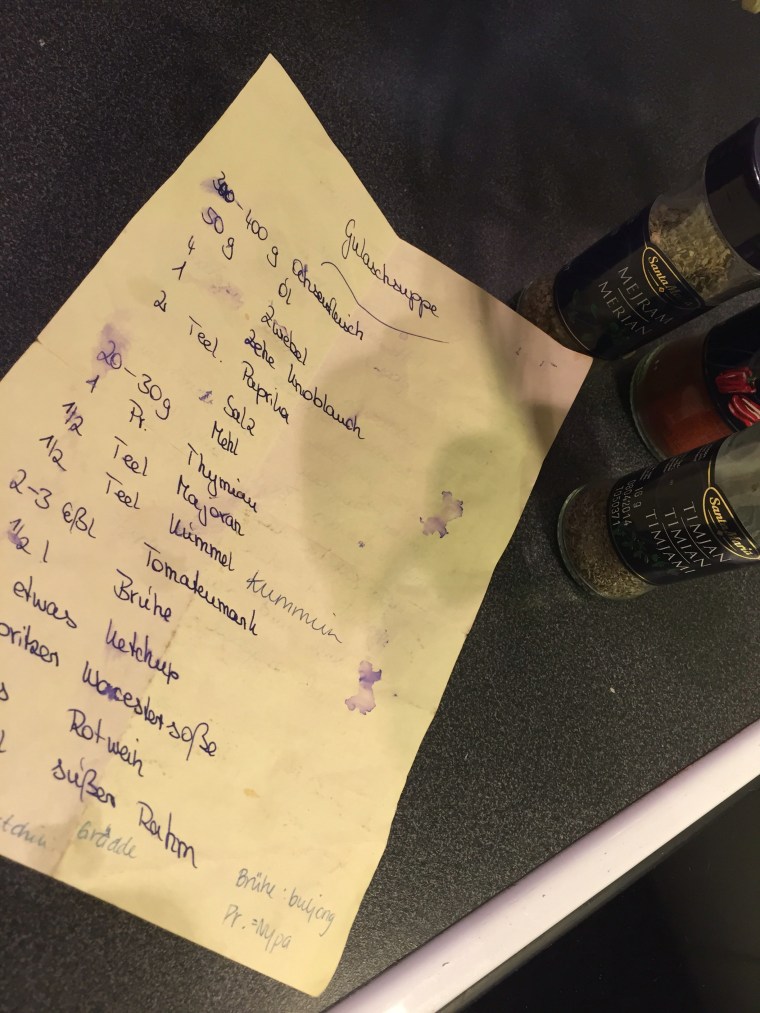 Gulaschsuppe
300-400 g Ochsenfleisch
50 g Öl
4 Zwiebel
1 Zehe Knoblauch
2 Teel. Paprika
Salz
20-30g Mehl
1 Pr. Thymian
1/2 Teel Majoran
1/2 Teel Kümmel Kummin
2-3 Eßl Tomatenmark
1/2 l Brühe
etwas Ketchup
Worcestersoße
Rotwein
süßen Rahm
Grädde
Brühe: buljong
Pr. = Nypa
Santa
MEJRAM
MERIAN
Santa Maria
TIMJAN
TIMIAN
TIMJAMI
10 g
09042014
1050371